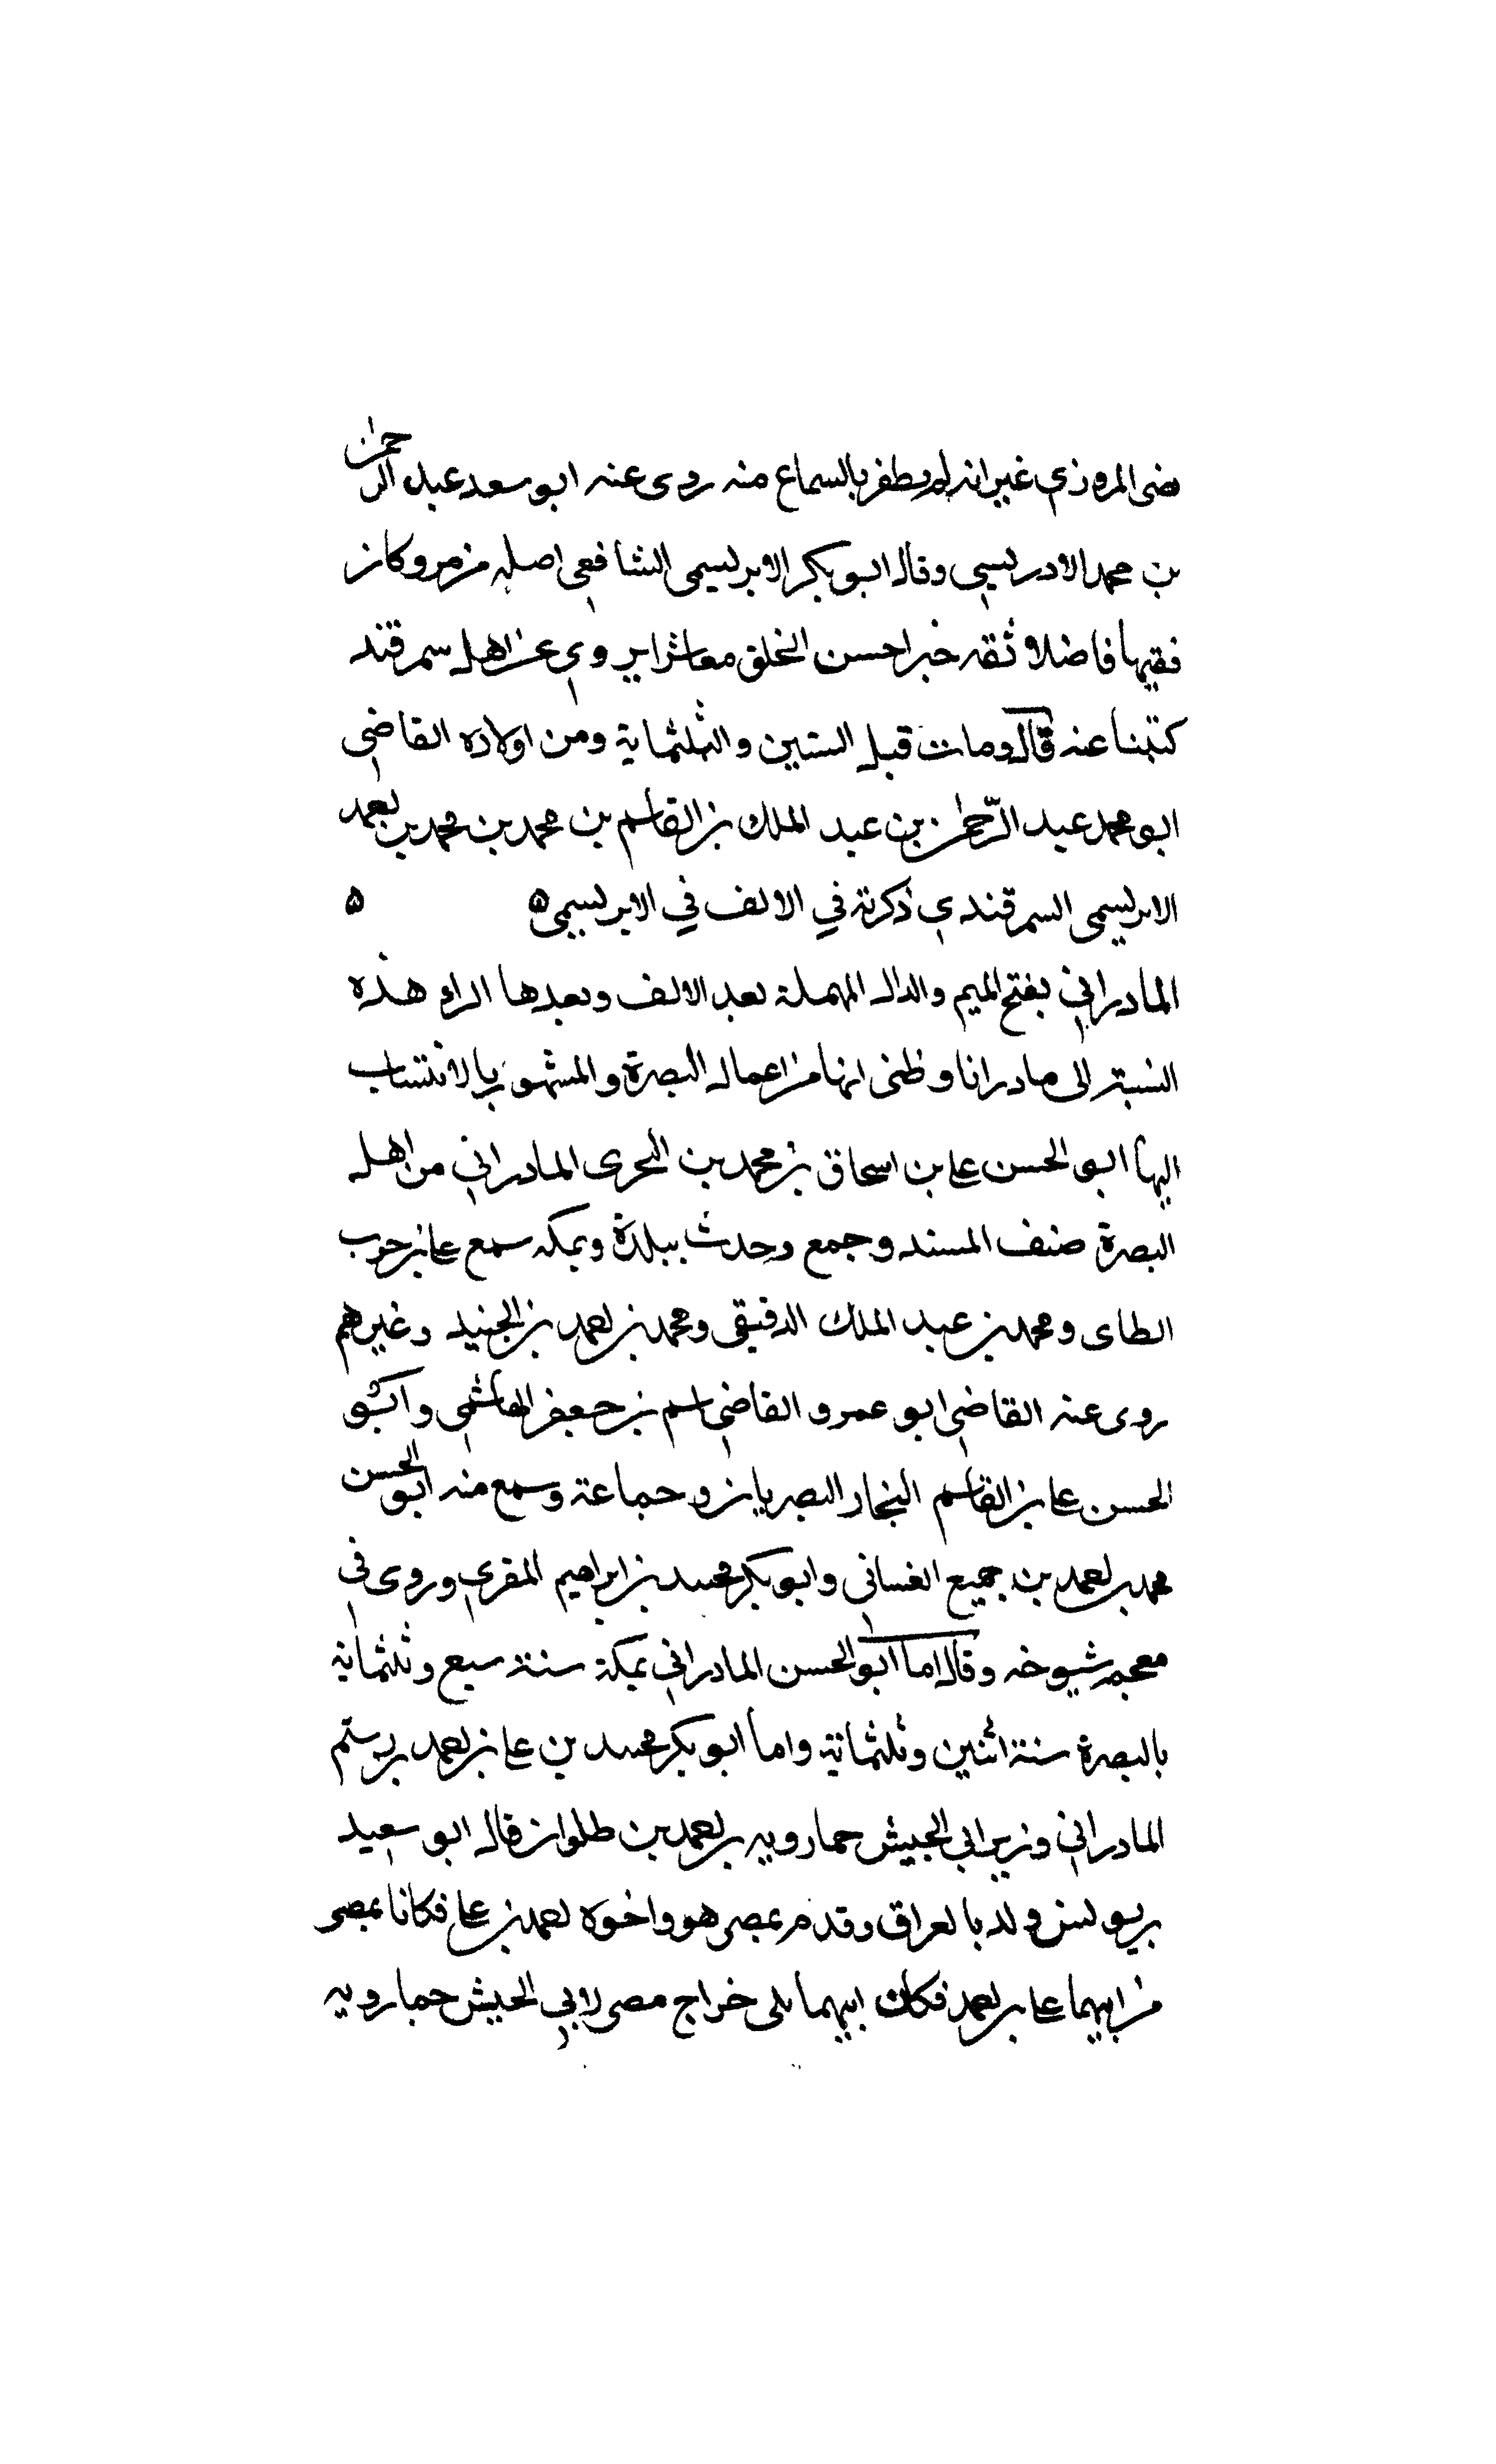 ضى المروزي غير انه لم يظفر بالسماع منه روى عنه ابو سعد عبد الرحمن
بن محمد الادريسي وقال ابو بكر الابريسمى الشافعي اصله من مرو وكان
فقيها فاضلا ثقه خيرا حسن الخلق معاشرا يروي عن اهل سمرقند
كتبنا عنه قال ومات قبل الستين والثلثماية ومن اولاده القاضي
ابو محمد عبد الرّحمن بن عبد الملك بن القاسم بن محمد بن محمد بن احمد
الابريسمى السمرقندي ذكرته في الالف في الابريسمى ه ه
المادراني بفتح الميم والدال المهملة بعد الالف وبعدها الراء هذه
النسبة الى مادرانا وظنى انها من اعمال البصرة والمشهور بالانتساب
اليها ابو الحسن على بن اسحاق بن محمد بن البحرى المادراني من اهل
البصرة صنف المسند وجمع وحدث ببلدة وبمكه سمع على بن حرب
الطاى ومحمد بن عبد الملك الدقيقى ومحمد بن احمد بن الجنيد وغيرهم
روى عنه القاضي ابو عمرو القاضي اسم بن جعفر الهاشمي وابو
الحسن على بن القاسم النجار البصريان وجماعة وسمع منه ابو الحسن
محمد بن احمد بن جميع الغسانى وابو بكر محمد بن ابراهيم المقري وروى في
معجم شيوخه وقال اما ابو الحسن المادراني بمكة سنة سبع وثلثماية
بالبصرة سنة اثنين وثلثماية واما ابو بكر محمد بن على بن احمد بن رستم
المادراني وزير ابي الجيش خمارويه بن احمد بن طلوان قال ابو سعيد
بن يونس ولد بالعراق وقدم بمصر هو واخوه احمد بن على فكانا بمصر
من ابيهما على بن احمد فكان ابيهما يلى خراج مصر لابي الجيش خمارويه